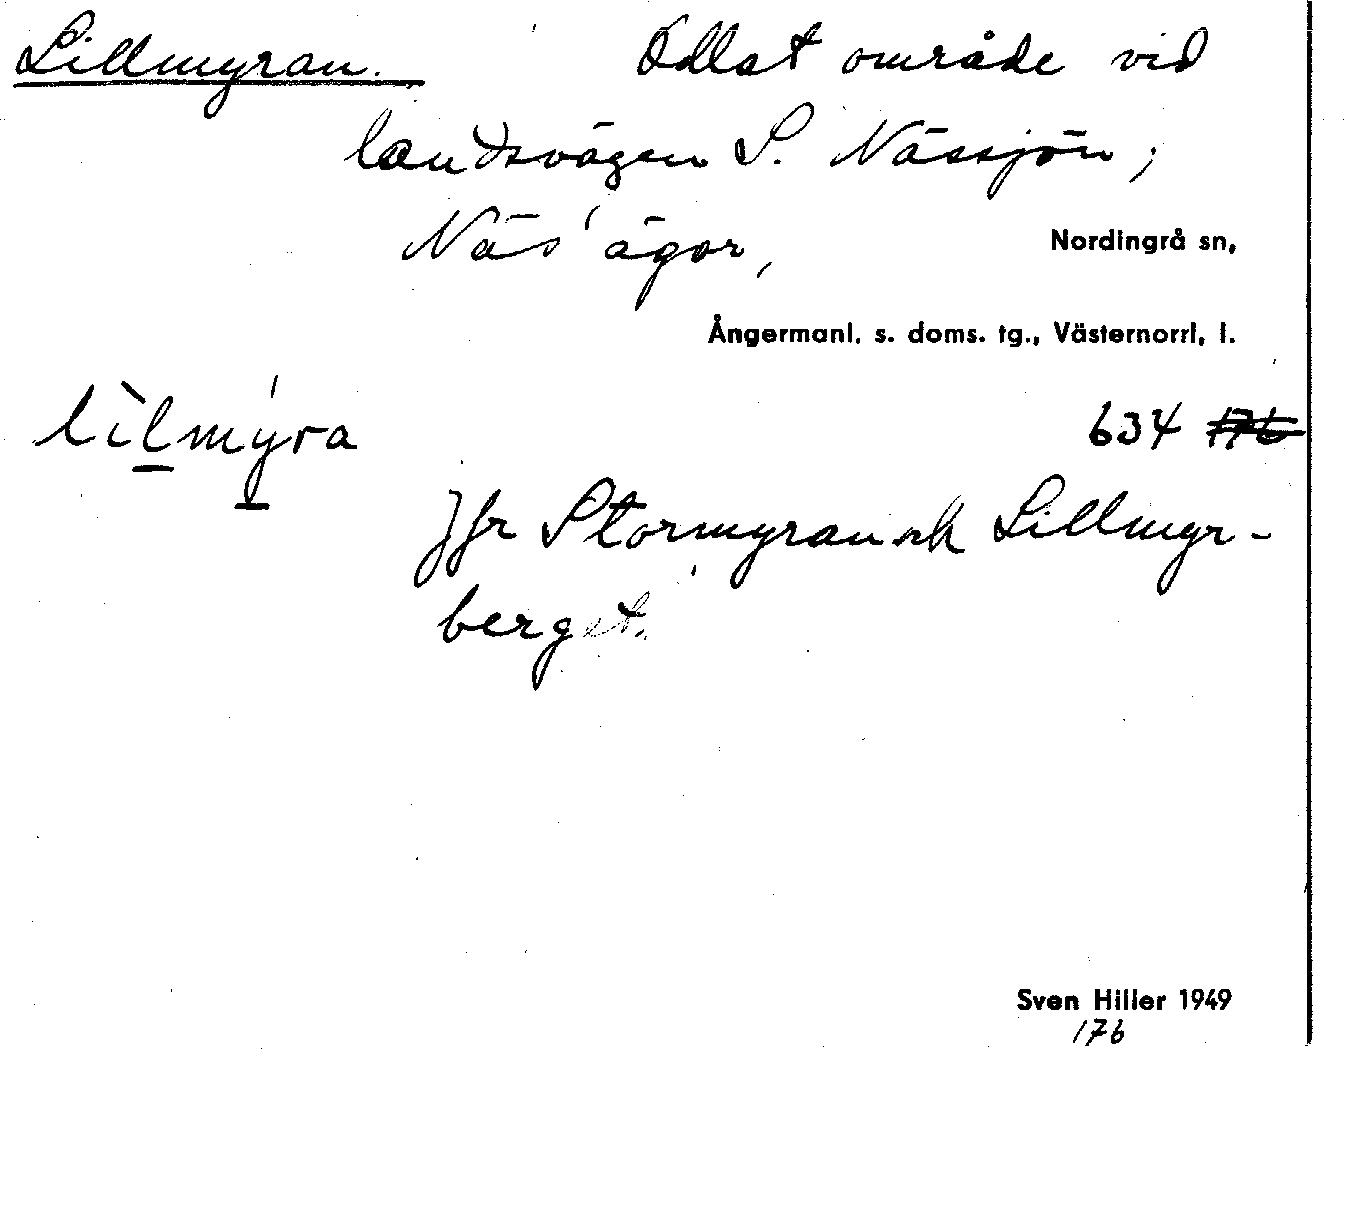 Lillmyran. Odlat område vid
landsvägen S. Nässjön;
Näs' ägor, Nordingrå sn,
Ångermanl. s. doms. tg., Västernorrl. l.
lìlmýra 634 176
Jfr Stormyran och Lillmyr-
berget.
Sven Hiller 1949
176